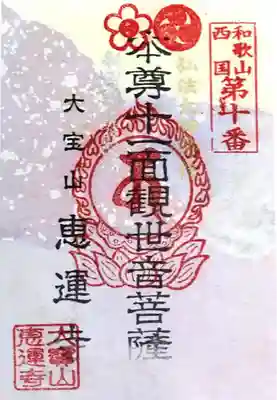 和歌山
西国
第十番
本尊十一面観世音菩薩
大宝山
恵運寺
大寶山
恵運寺